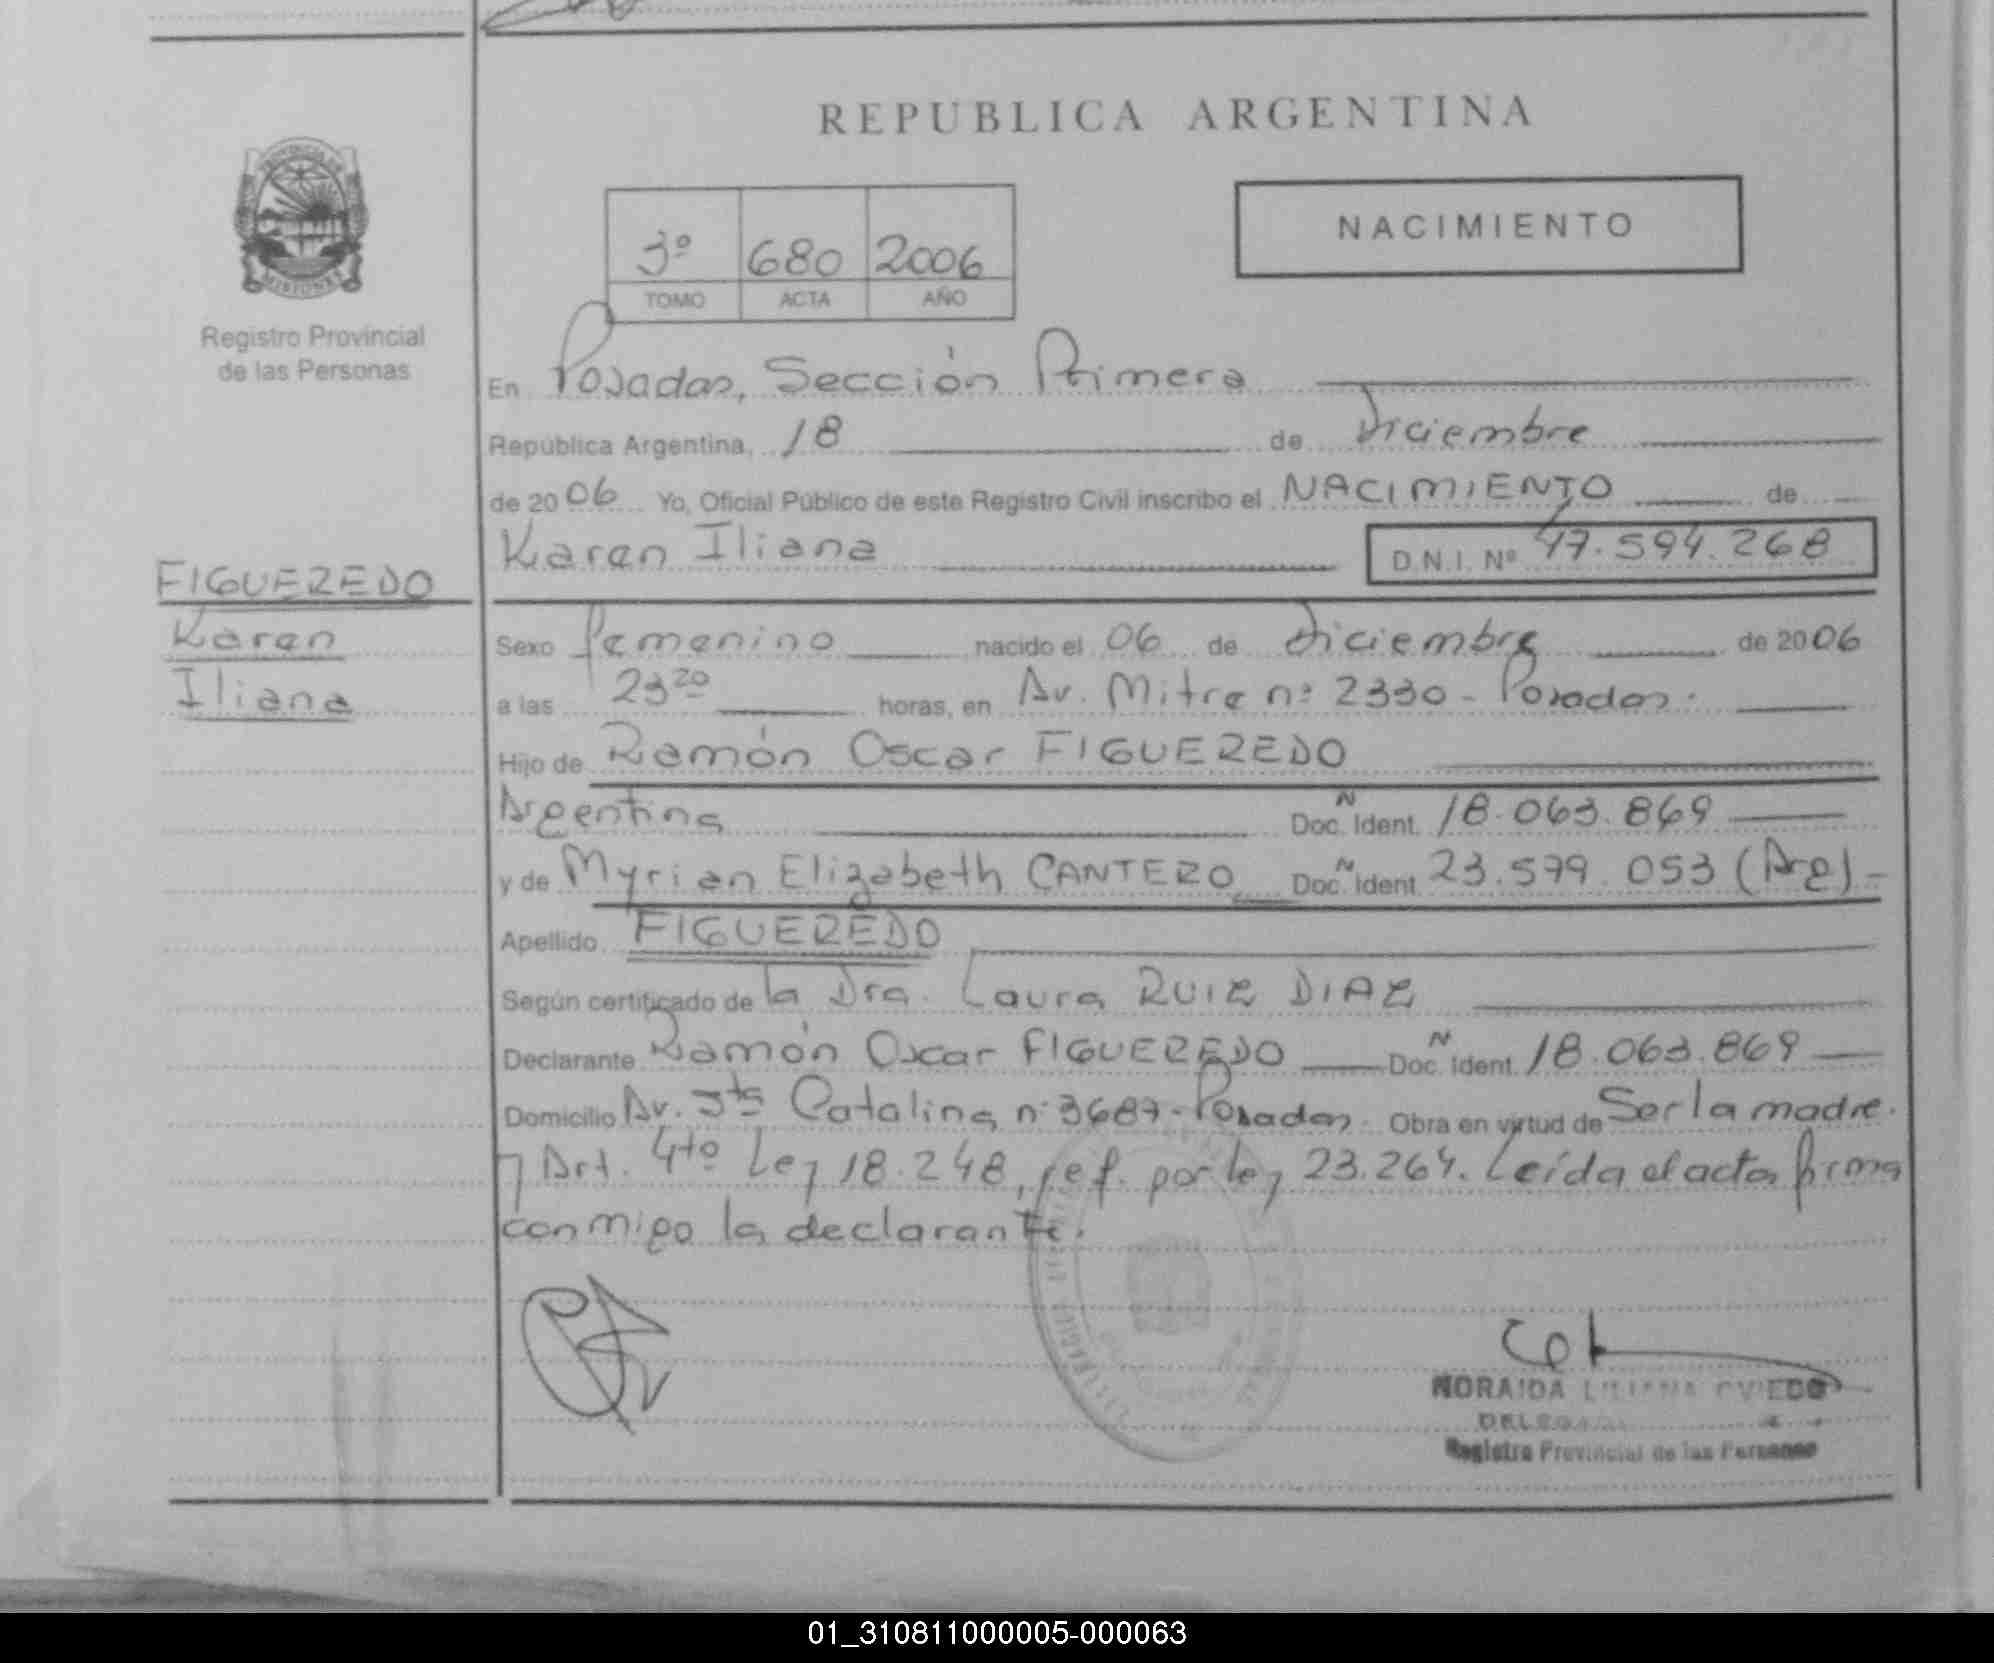 REPUBLICA ARGENTINA
NACIMIENTO
3º 680 2006
TOMO ACTA AÑO
PROVINCIA DE
MISIONES
Registro Provincial
de las Personas
En Posadas, Sección Primera
República Argentina, 18 de Diciembre
de 2006 Yo, Oficial Público de este Registro Civil inscribo el NACIMIENTO de
Karen Iliana D.N.I. Nº 47.594.268
FIGUEREDO
Karen
Iliana
Sexo Femenino nacido el 06 de Diciembre de 2006
a las 23 20 horas, en Av. Mitre nº 2330 - Posadas.
Hijo de Ramón Oscar FIGUEREDO
Argentina Doc. Ident. N 18.063.869
y de Myrian Elizabeth CANTERO Doc. Ident. N 23.579.053 (Arg) -
Apellido FIGUEREDO
Según certificado de la Dra. Laura RUIZ DIAZ
Declarante Ramón Oscar FIGUEREDO Doc. Ident. N 18.063.869
Domicilio Av. Sta Catalina nº 3687 - Posadas. Obra en virtud de Ser la madre.
y Art. 4to Ley 18.248, ref. por ley 23.264. Leída el acta, firma
conmigo la declarante.
NORAIDA LILIANA OVIEDO
Registro Provincial de las Personas
01_310811000005-000063